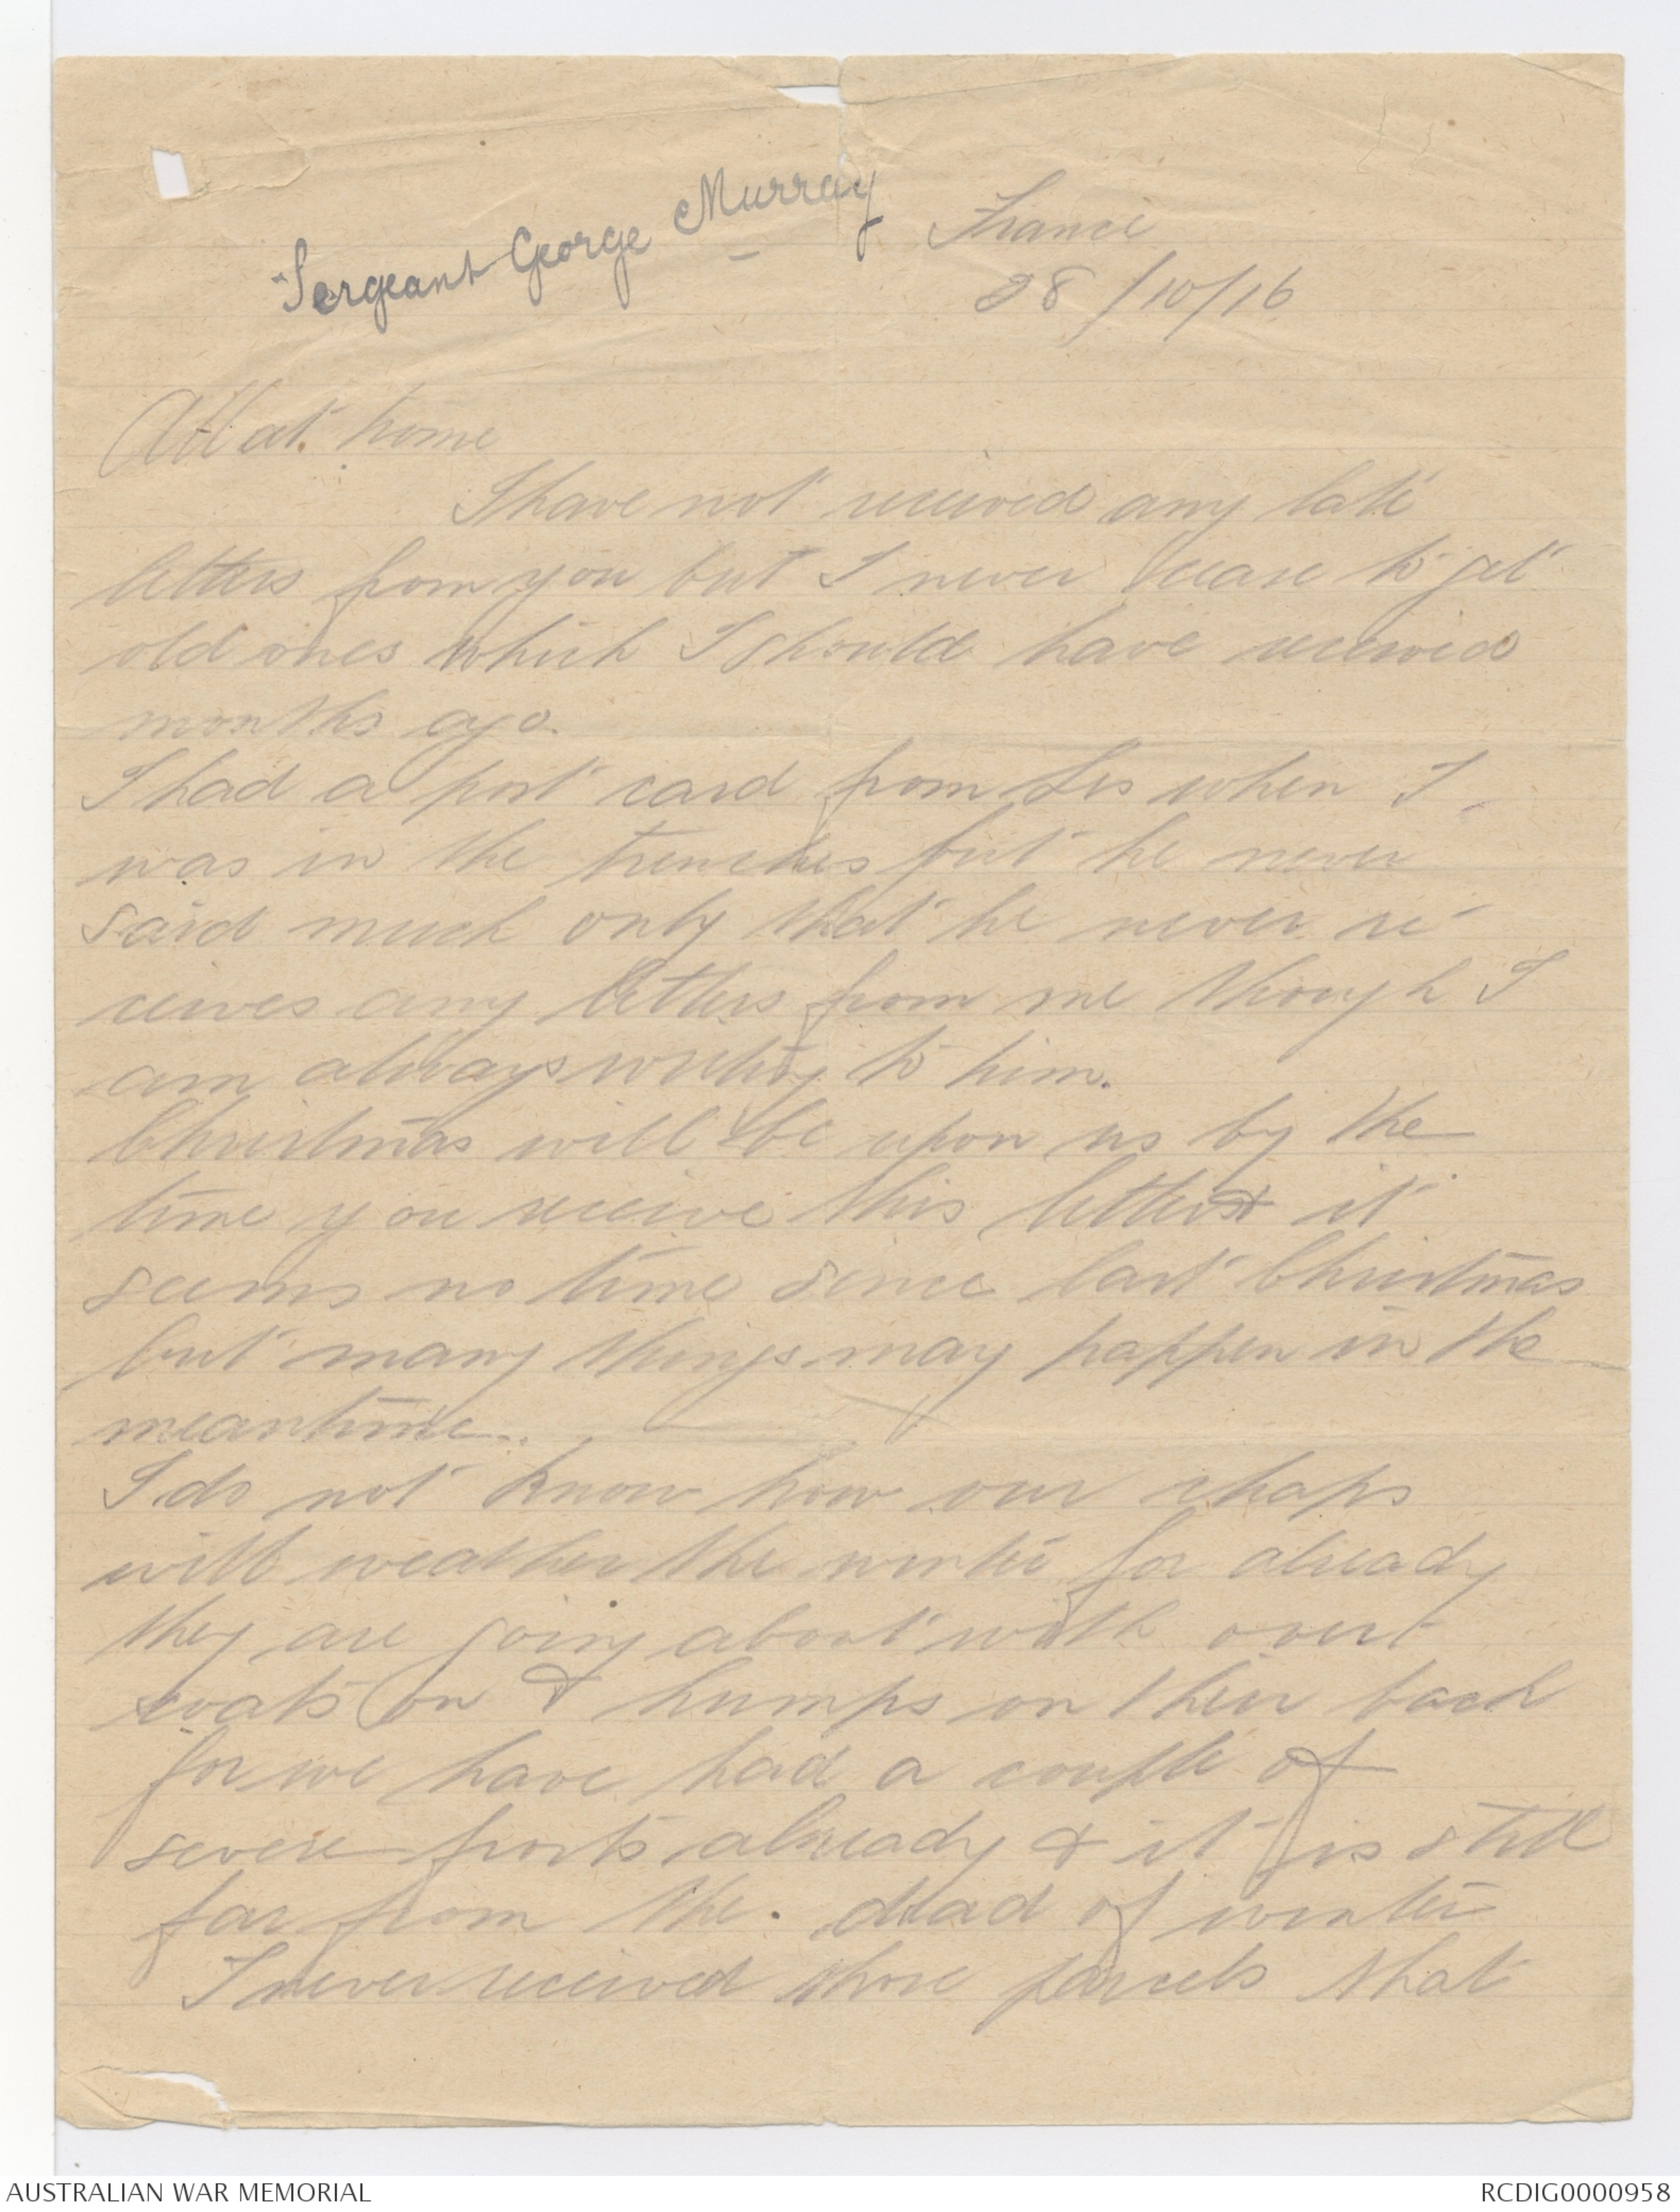 Sergeant George Murray
France
28/10/16
All at home
I have not received any late
letters from you but I never cease to get
old ones which I should have received
months ago.
I had a post card from Les when I
was in the trenches but he never
said much only that he never re-
ceives any letters from me though I
am always writing to him.
Christmas will be upon us by the
time you receive this letter & it
seems no time since last Christmas
but many things may happen in the
meantime.
I do not know how our chaps
will weather the winter for already
they are going about with over
coats on & humps on their back
for we have had a couple of
severe frosts already & it is still
far from the dead of winter
I never received those parcels that
AUSTRALIAN WAR MEMORIAL
RCDIG0000958